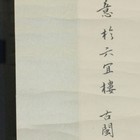 意於六宜樓 古閩